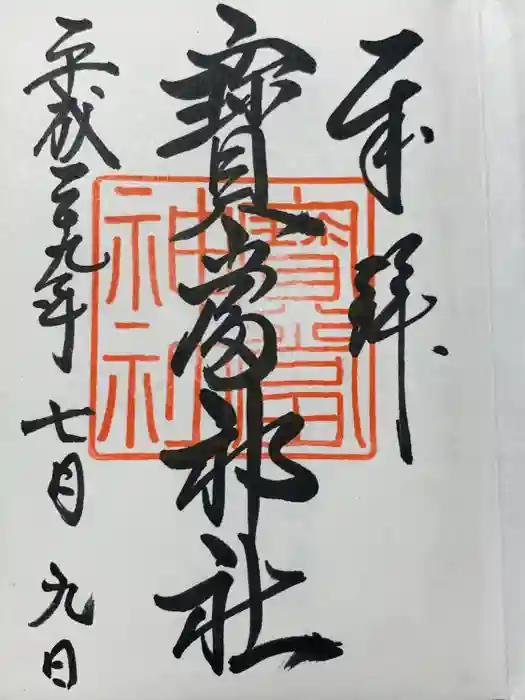 奉拝
寳當神社
平成二十九年七月九日
寳當
神社